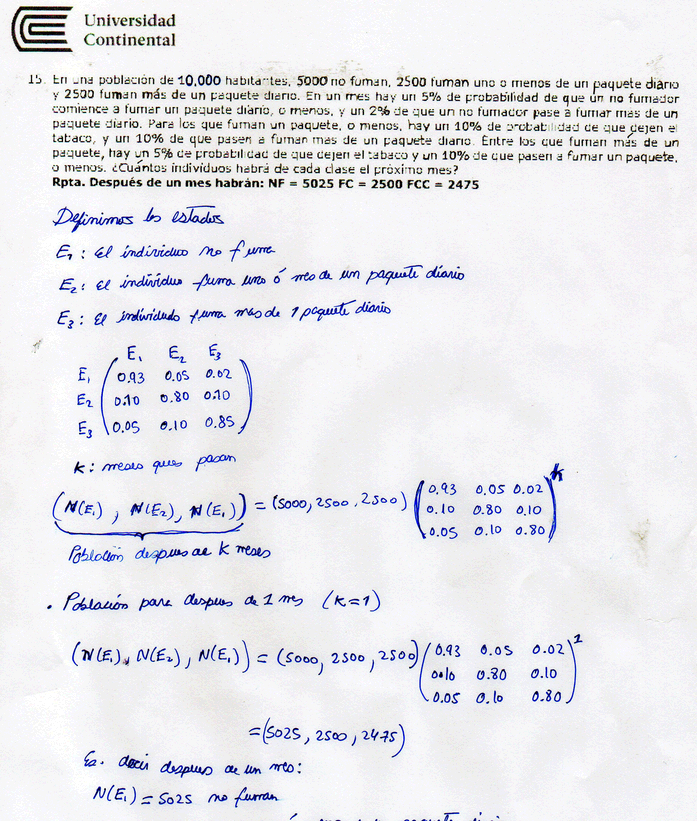 Universidad
Continental
15. En una población de 10,000 habitantes, 5000 no fuman, 2500 fuman uno o menos de un paquete diario
y 2500 fuman más de un paquete diario. En un mes hay un 5% de probabilidad de que un no fumador
comience a fumar un paquete diario, o menos, y un 2% de que un no fumador pase a fumar más de un
paquete diario. Para los que fuman un paquete, o menos, hay un 10% de probabilidad de que dejen el
tabaco, y un 10% de que pasen a fumar más de un paquete diario. Entre los que fuman más de un
paquete, hay un 5% de probabilidad de que dejen el tabaco y un 10% de que pasen a fumar un paquete,
o menos. ¿Cuántos individuos habrá de cada clase el próximo mes?
Rpta. Después de un mes habrán: NF = 5025 FC = 2500 FCC = 2475
Definimos los estados
E₁ : El individuo no fuma
E₂ : el individuo fuma uno ó menos de un paquete diario
E₃ : El individuo fuma mas de 1 paquete diario
E₁ E₂ E₃
E₁ 0.93 0.05 0.02
E₂ 0.10 0.80 0.10
E₃ 0.05 0.10 0.85
k : meses ques pasan
(N(E₁) , N(E₂), N(E₁)) = (5000, 2500, 2500) (0.93 0.05 0.02
0.10 0.80 0.10
0.05 0.10 0.80)ᵏ
Población despues de K meses
. Población para despues de 1 mes (K=1)
(N(E₁), N(E₂), N(E₁)) = (5000, 2500, 2500) (0.93 0.05 0.02
0.10 0.80 0.10
0.05 0.10 0.80)¹
=(5025, 2500, 2475)
Es. decir despues de un mes:
N(E₁) = 5025 no fuman